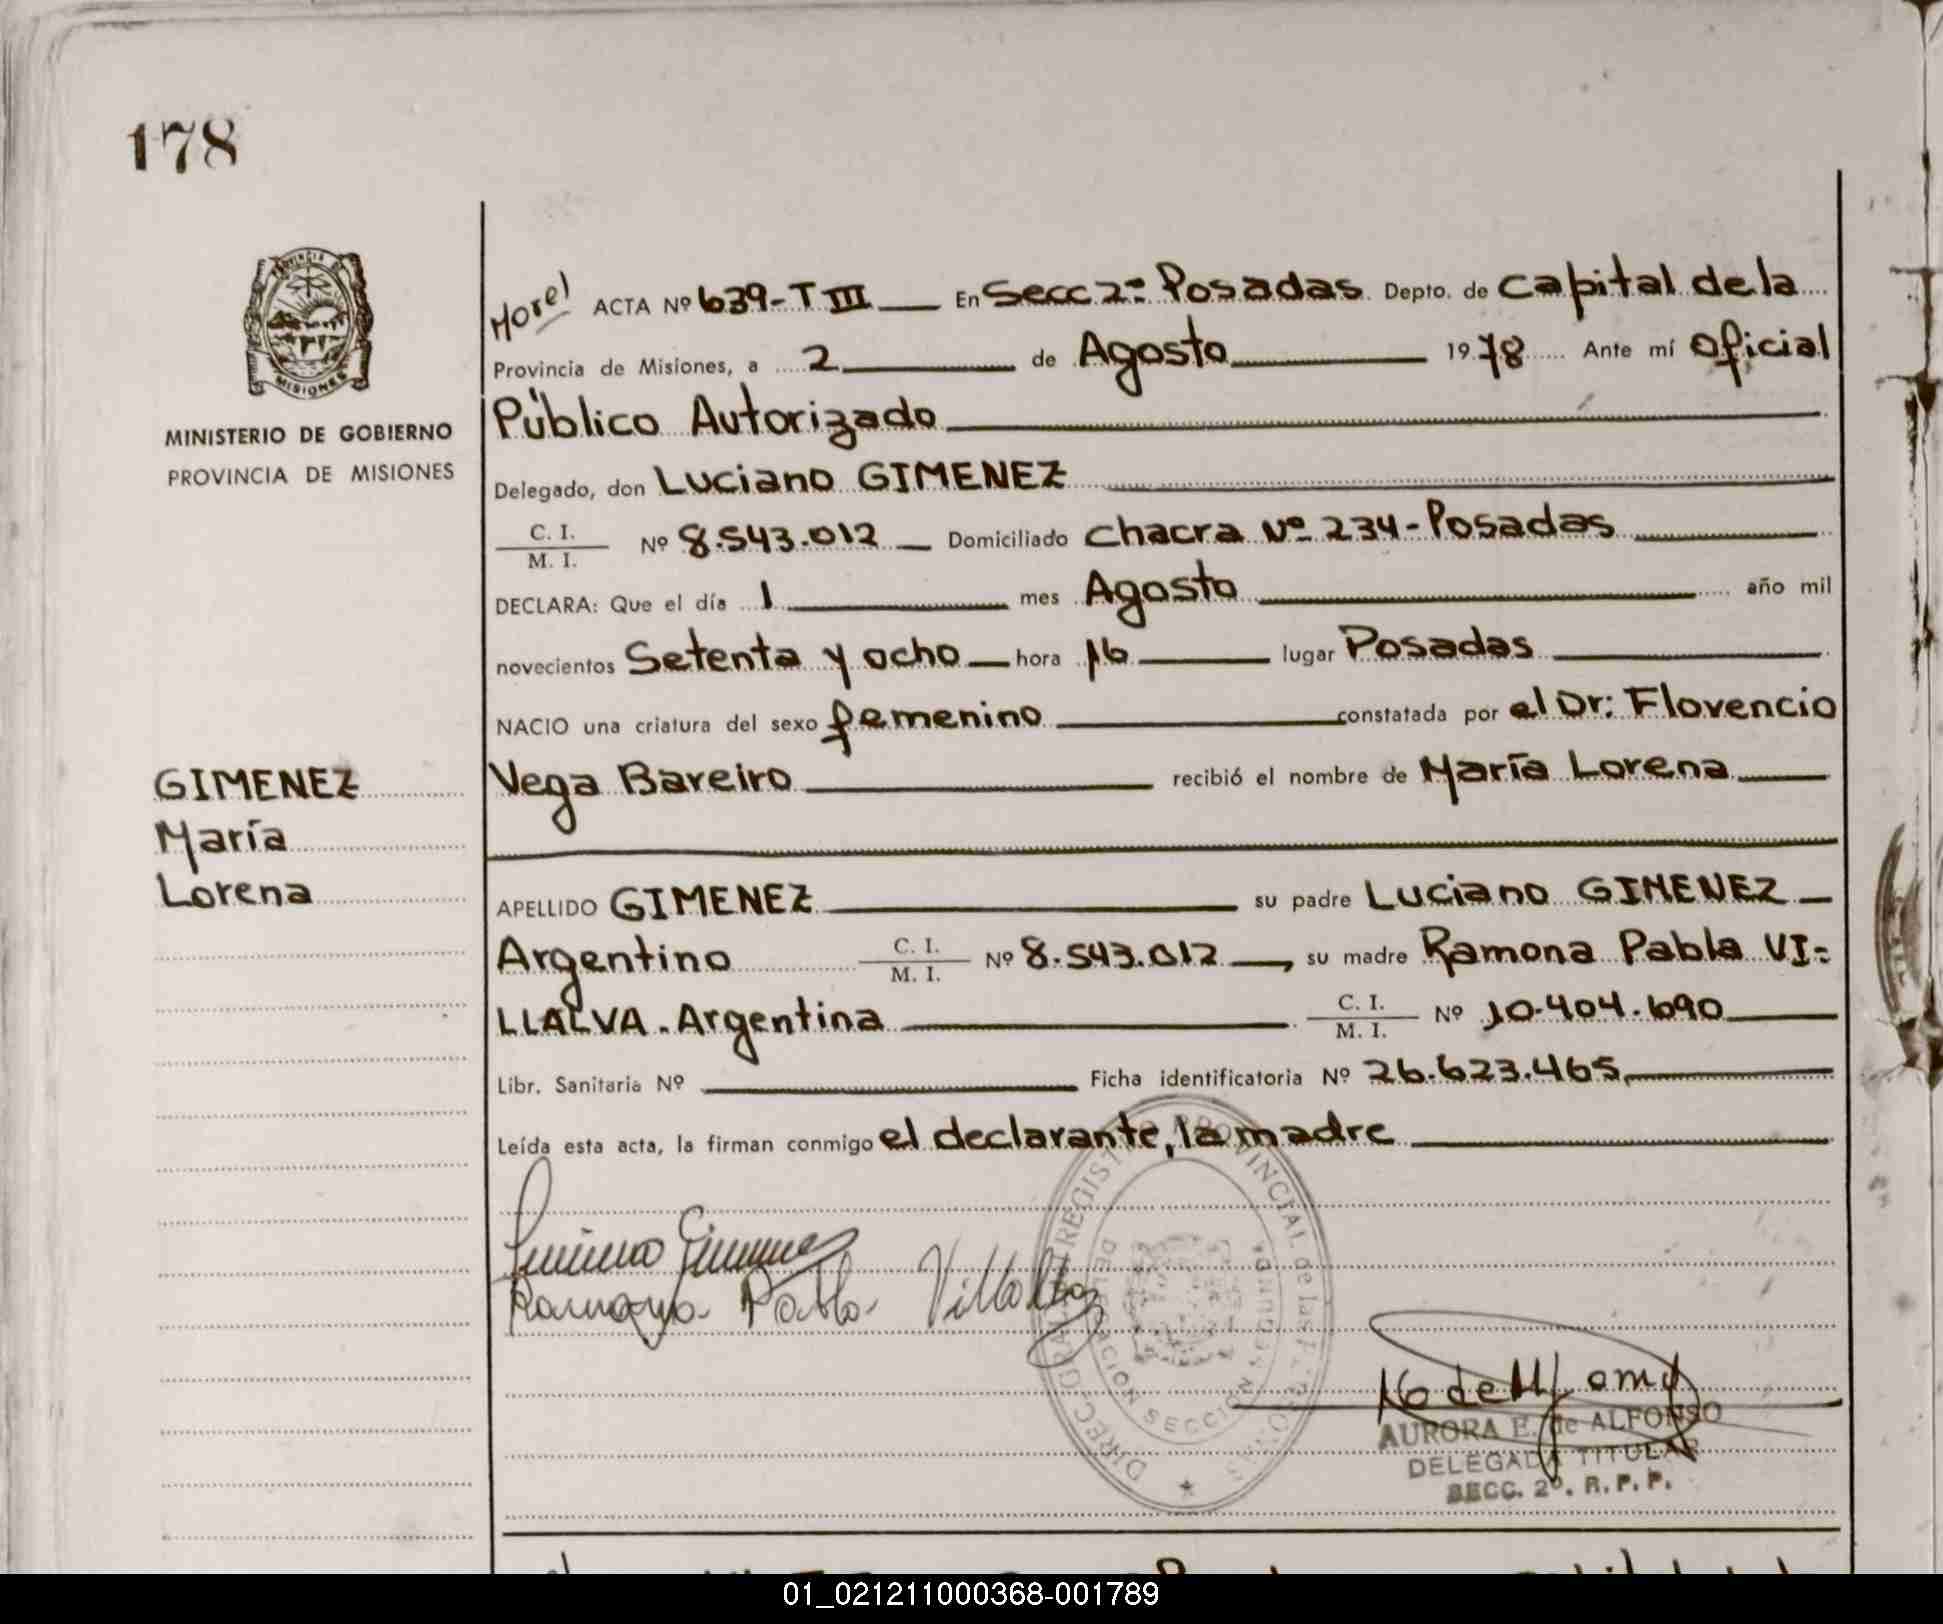 178
PROVINCIA DE
MISIONES
MINISTERIO DE GOBIERNO
PROVINCIA DE MISIONES
GIMENEZ
María
Lorena
ACTA Nº 639-T III En Secc 2ª Posadas Depto. de Capital de la
Provincia de Misiones, a 2 de Agosto 1978 Ante mí Oficial
Público Autorizado
Delegado, don Luciano GIMENEZ
C. I.
M. I. Nº 8.543.012 Domiciliado Chacra Nº 234-Posadas
DECLARA: Que el día 1 mes Agosto año mil
novecientos Setenta y ocho hora 16 lugar Posadas
NACIO una criatura del sexo femenino constatada por el Dr: Florencio
Vega Bareiro recibió el nombre de María Lorena
APELLIDO GIMENEZ su padre Luciano GIMENEZ
Argentino C. I. M. I. Nº 8.543.012, su madre Ramona Pabla VI=
LLALVA. Argentina C. I. M. I. Nº 10.404.690
Libr. Sanitaria Nº Ficha identificatoria Nº 26.623.465
Leída esta acta, la firman conmigo el declarante, la madre
Luciano Gimenez
Ramona Pabla Villalba
DIREC. GRAL. REGISTRO PROVINCIAL de las PERSONAS
DELEGACION SECCION SEGUNDA
AURORA E. de ALFONSO
DELEGADA TITULAR
SECC. 2º. R. P. P.
01_021211000368-001789